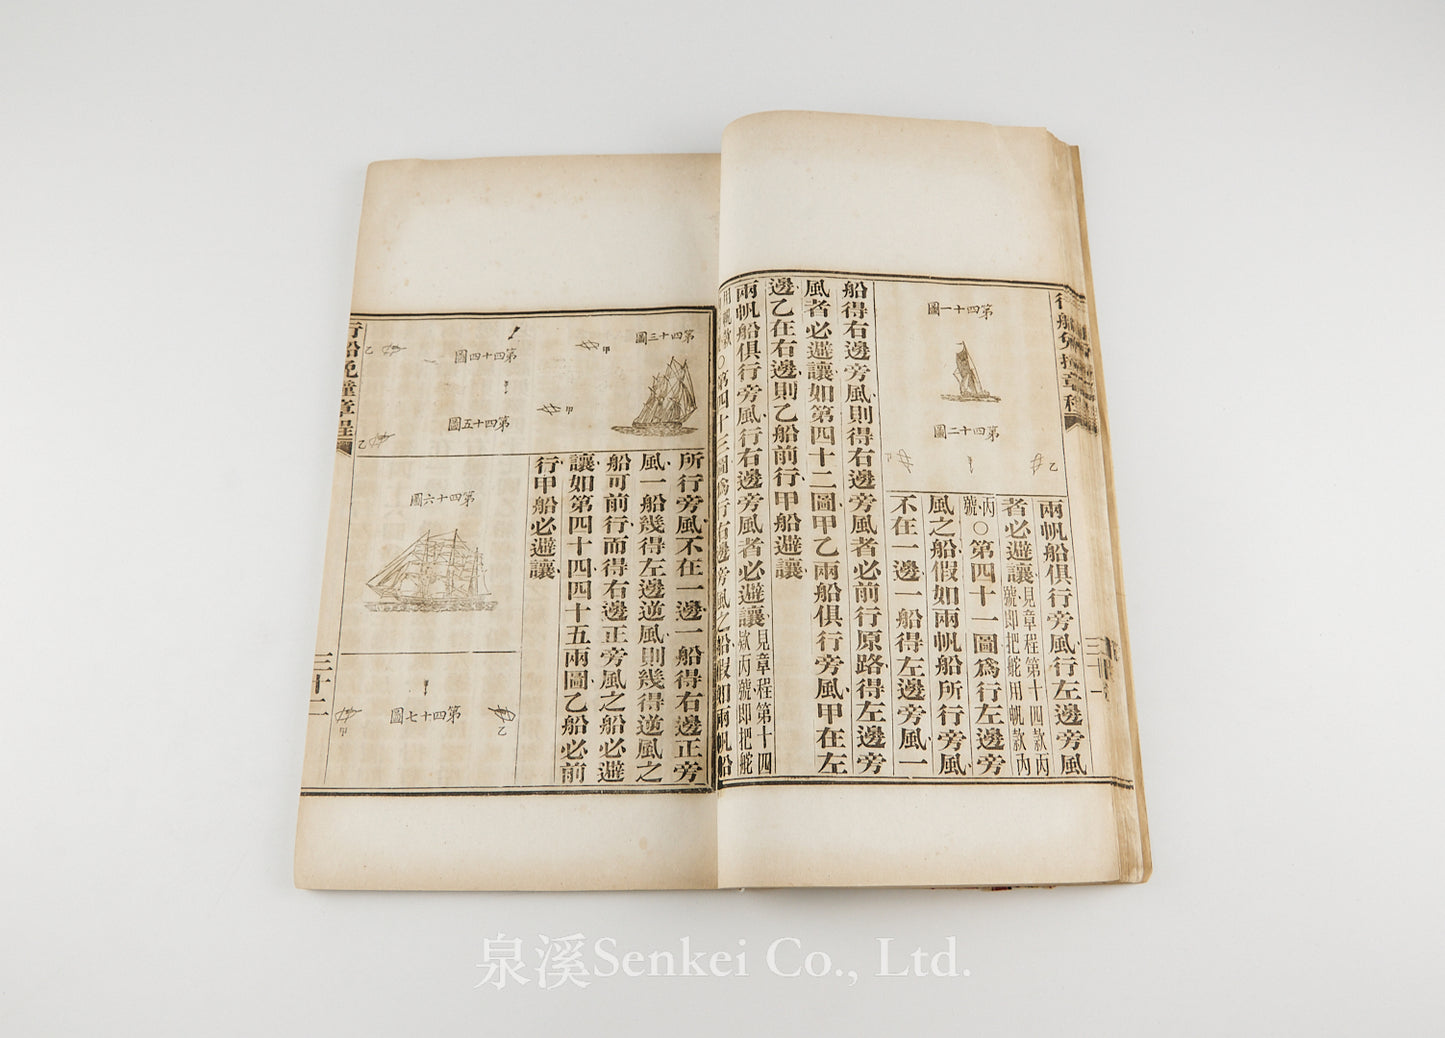 行船免撞章程
第四十一圖
第四十二圖
乙
甲
兩帆船俱行旁風行左邊旁風
者必避讓見章程第十四款丙號即把舵用帆款內
丙號〇第四十一圖爲行左邊旁
風之船假如兩帆船所行旁風
不在一邊一船得左邊旁風一
船得右邊旁風則得右邊旁風者必前行原路得左邊旁
風者必避讓如第四十二圖甲乙兩船俱行旁風甲在左
邊乙在右邊則乙船前行甲船避讓
兩帆船俱行旁風行右邊旁風者必避讓見章程第十四款丙號即把舵
用帆款〇第四十三圖爲行右邊旁風之船假如兩帆船
三十一
第四十三圖
第四十四圖
甲
乙
第四十五圖
甲
乙
所行旁風不在一邊一船得右邊正旁
風一船幾得左邊逆風則幾得逆風之
船可前行而得右邊正旁風之船必避
讓如第四十四四十五兩圖乙船必前
行甲船必避讓
第四十六圖
第四十七圖
乙
甲
行船免撞章程
三十二
泉溪Senkei Co., Ltd.